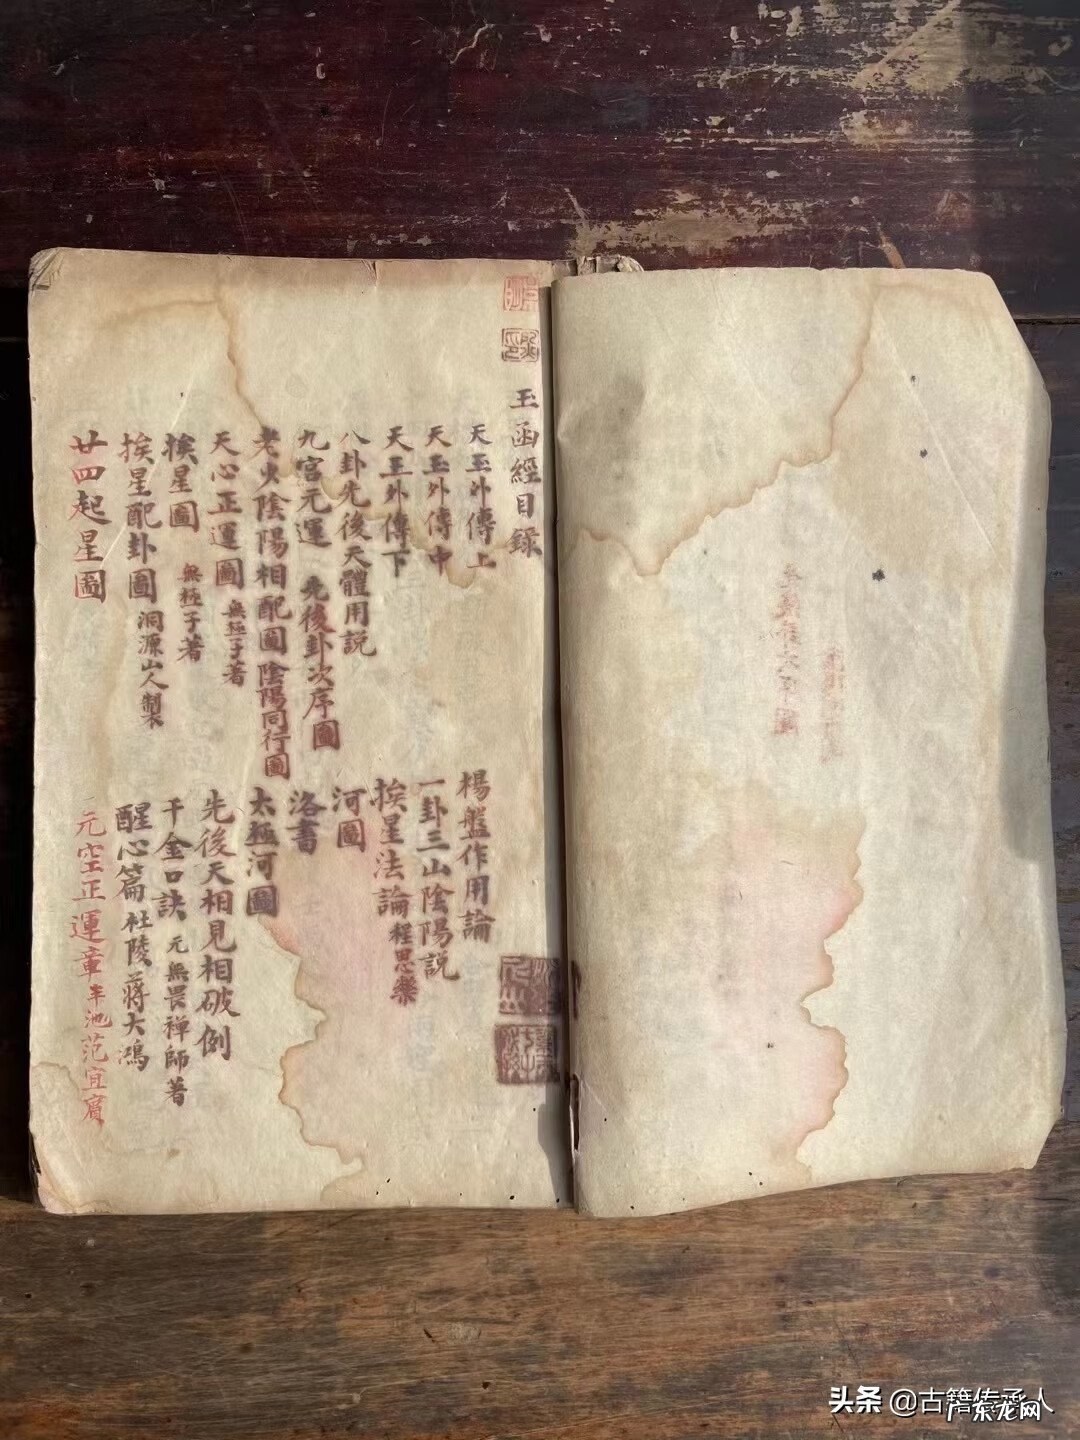 玉函經目錄
天玉外傳上
天玉外傳中
天玉外傳下
八卦先後天體用説
九宮元運 先後卦次序圖
老少陰陽相配圖 陰陽同行圖
天心正運圖 無極子著
挨星圖 無極子著
挨星配卦圖 洞源山人製
廿四起星圖
楊盤作用論
一卦三山陰陽説
挨星法論 程思樂
河圖
洛書
太極河圖
先後天相見相破例
千金口訣 元無畏禅師著
醒心篇 杜陵蔣大鴻
元空正運章 峯池范宜賓
头条 @古籍传承人
广东龙网